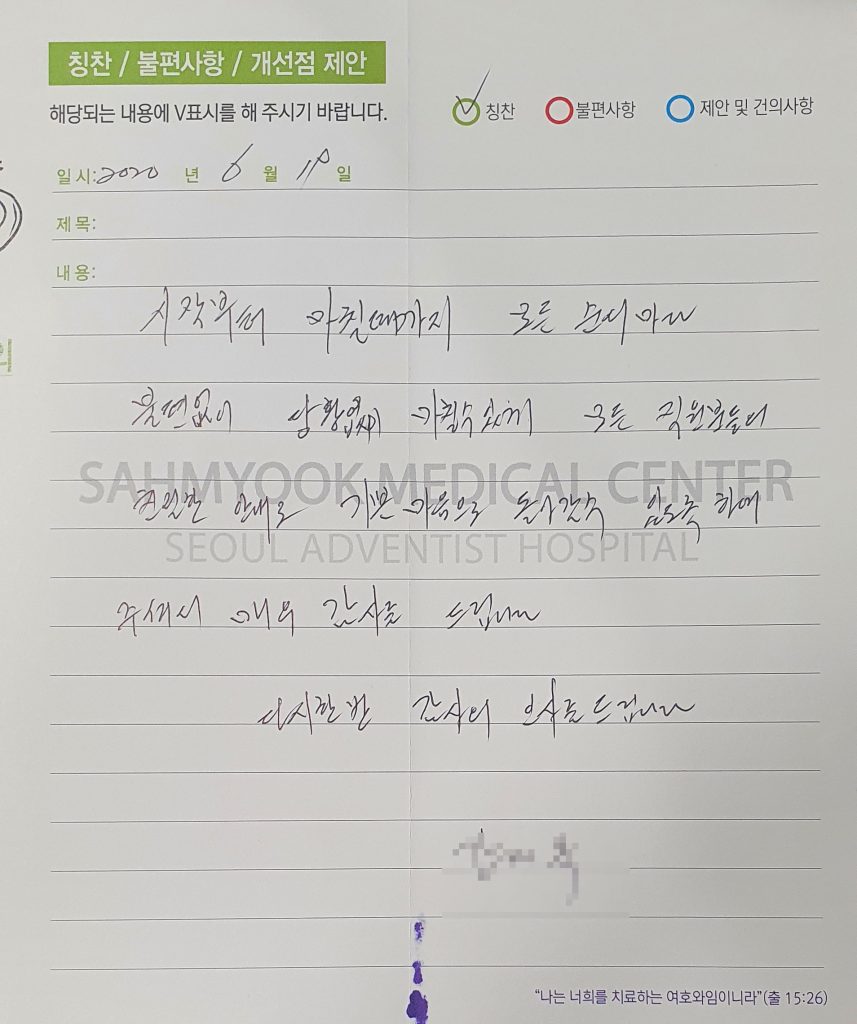 칭찬 / 불편사항 / 개선점 제안
해당되는 내용에 V표시를 해 주시기 바랍니다.
칭찬 불편사항 제안 및 건의사항
일시: 2020 년 6 월 일
제목:
내용:
시작부터 마칠때까지 모든 순서마다
불편없이 당황없이 마칠수있게 모든 직원분들이
친절한 안내로 기쁜마음으로 돌아갈수 있도록 하여
주셔서 매우 감사를 드립니다
다시한번 감사의 인사를 드립니다
SAHMYOOK MEDICAL CENTER
SEOUL ADVENTIST HOSPITAL
“나는 너희를 치료하는 여호와임이니라”(출 15:26)